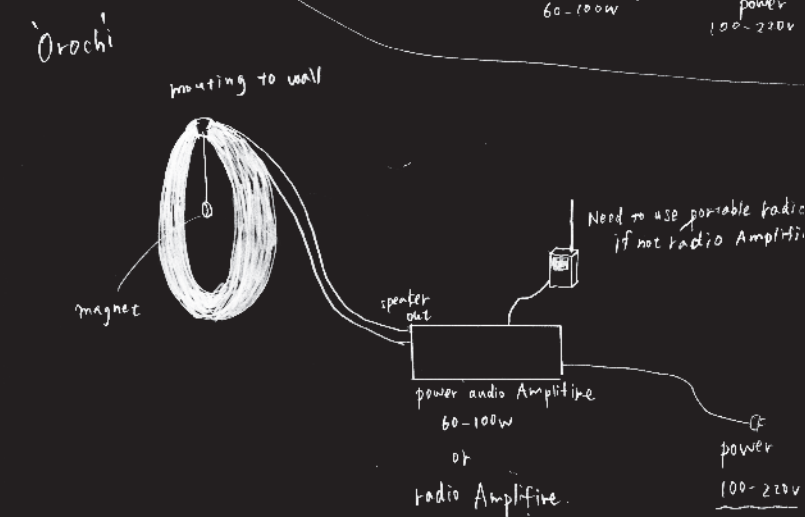 60-100w
power
100-220v
'Orochi'
mouting to wall
Need to use portable radio
if not radio Amplifi
magnet
speaker
out
power audio Amplifire
60-100W
or
radio Amplifire.
power
100-220v